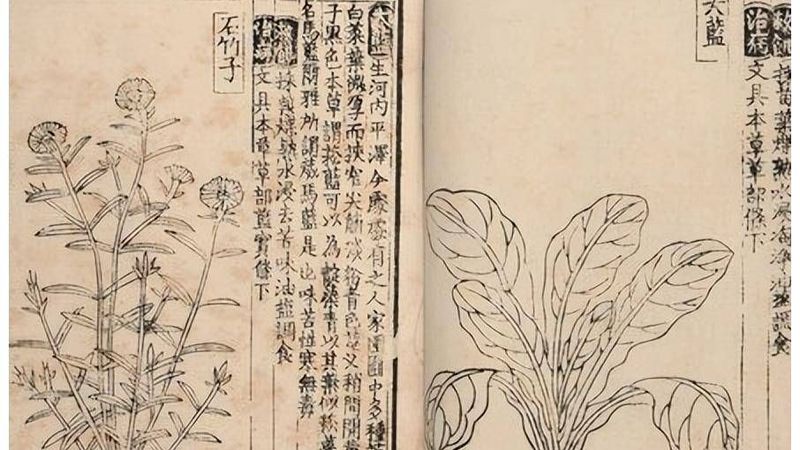 救飢採苗葉煠熟水浸淘淨油鹽調食
治病文具本草草部條下
大藍
大藍生河內平澤今處處有之人家園圃中多種苗
白菜葉微厚而狹窄尖淡粉青色莖叉稍間開黃
子黑色本草謂菘藍可以為靛染青以其葉似菘菜
名馬藍爾雅所謂葴馬藍是也味苦性寒無毒
救飢採葉煠熟水浸去苦味油鹽調食
治病文具本草草部藍實條下
石竹子